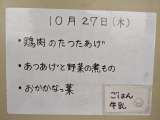 10月27日(木)
・鶏肉のたつたあげ
・あつあげと野菜の煮もの
・おかかなっ葉
ごはん
牛乳